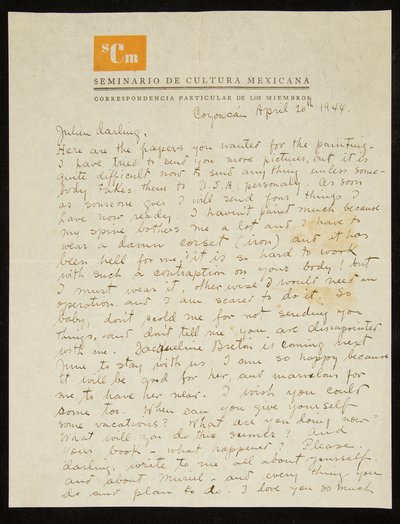 sCm
SEMINARIO DE CULTURA MEXICANA
CORRESPONDENCIA PARTICULAR DE LOS MIEMBROS
Coyoacán April 20th 1944.
Julien darling,
Here are the papers you wanted for the painting.
I have tried to send you more pictures, but it is
quite difficult now to send any thing unless some-
body takes them to U.S.A. personaly. As soon
as someone goes I will send four things I
have now ready. I haven't paint much because
my spine bothers me a lot and I have to
wear a damn corset (iron) and it has
been hell for me; it is so hard to work
with such a contraption on your body! but
I must wear it, otherwise I would need an
operation and I am scared to do it. So
baby, don't scold me for not sending you
things, and don't tell me you are dissapointed
with me. Jacqueline Breton is coming next
June to stay with us. I am so happy because
it will be good for her, and marvelous for
me, to have her near. I wish you could
come too. When can you give yourself
some vacations? What are you doing now?
What will you do this summer? And
your book - what happened? Please
darling, write to me all about yourself.
and about Muriel - and every thing you
do and plan to do. I love you so much